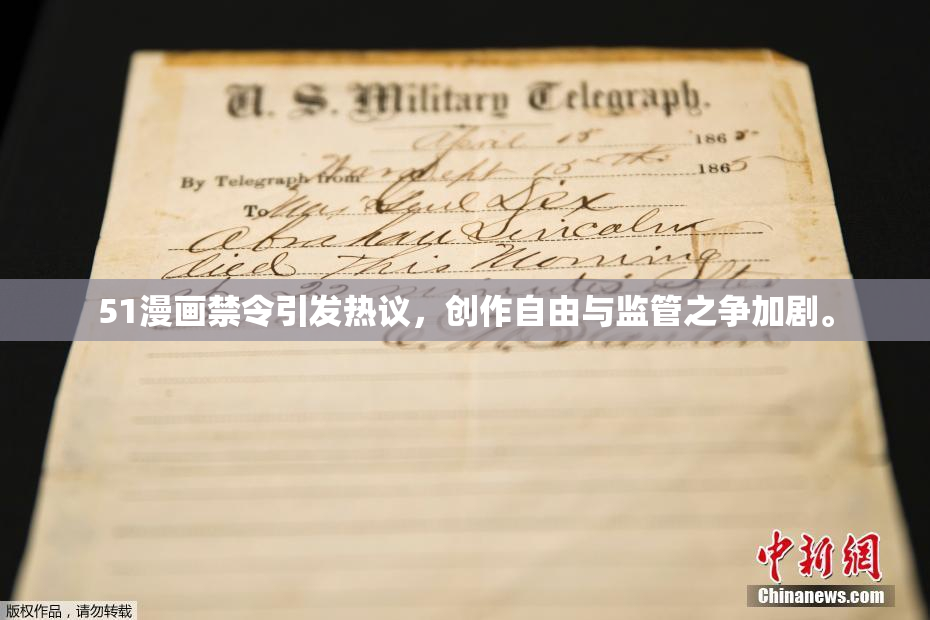 U. S. Military Telegraph.
April 15 1865
By Telegraph from War Dept 15th 1865
To Maj Genl Dix
Abraham Lincoln
died This Morning
22 minutes after
51漫画禁令引发热议，创作自由与监管之争加剧。
中新网
Chinanews.com
版权作品，请勿转载